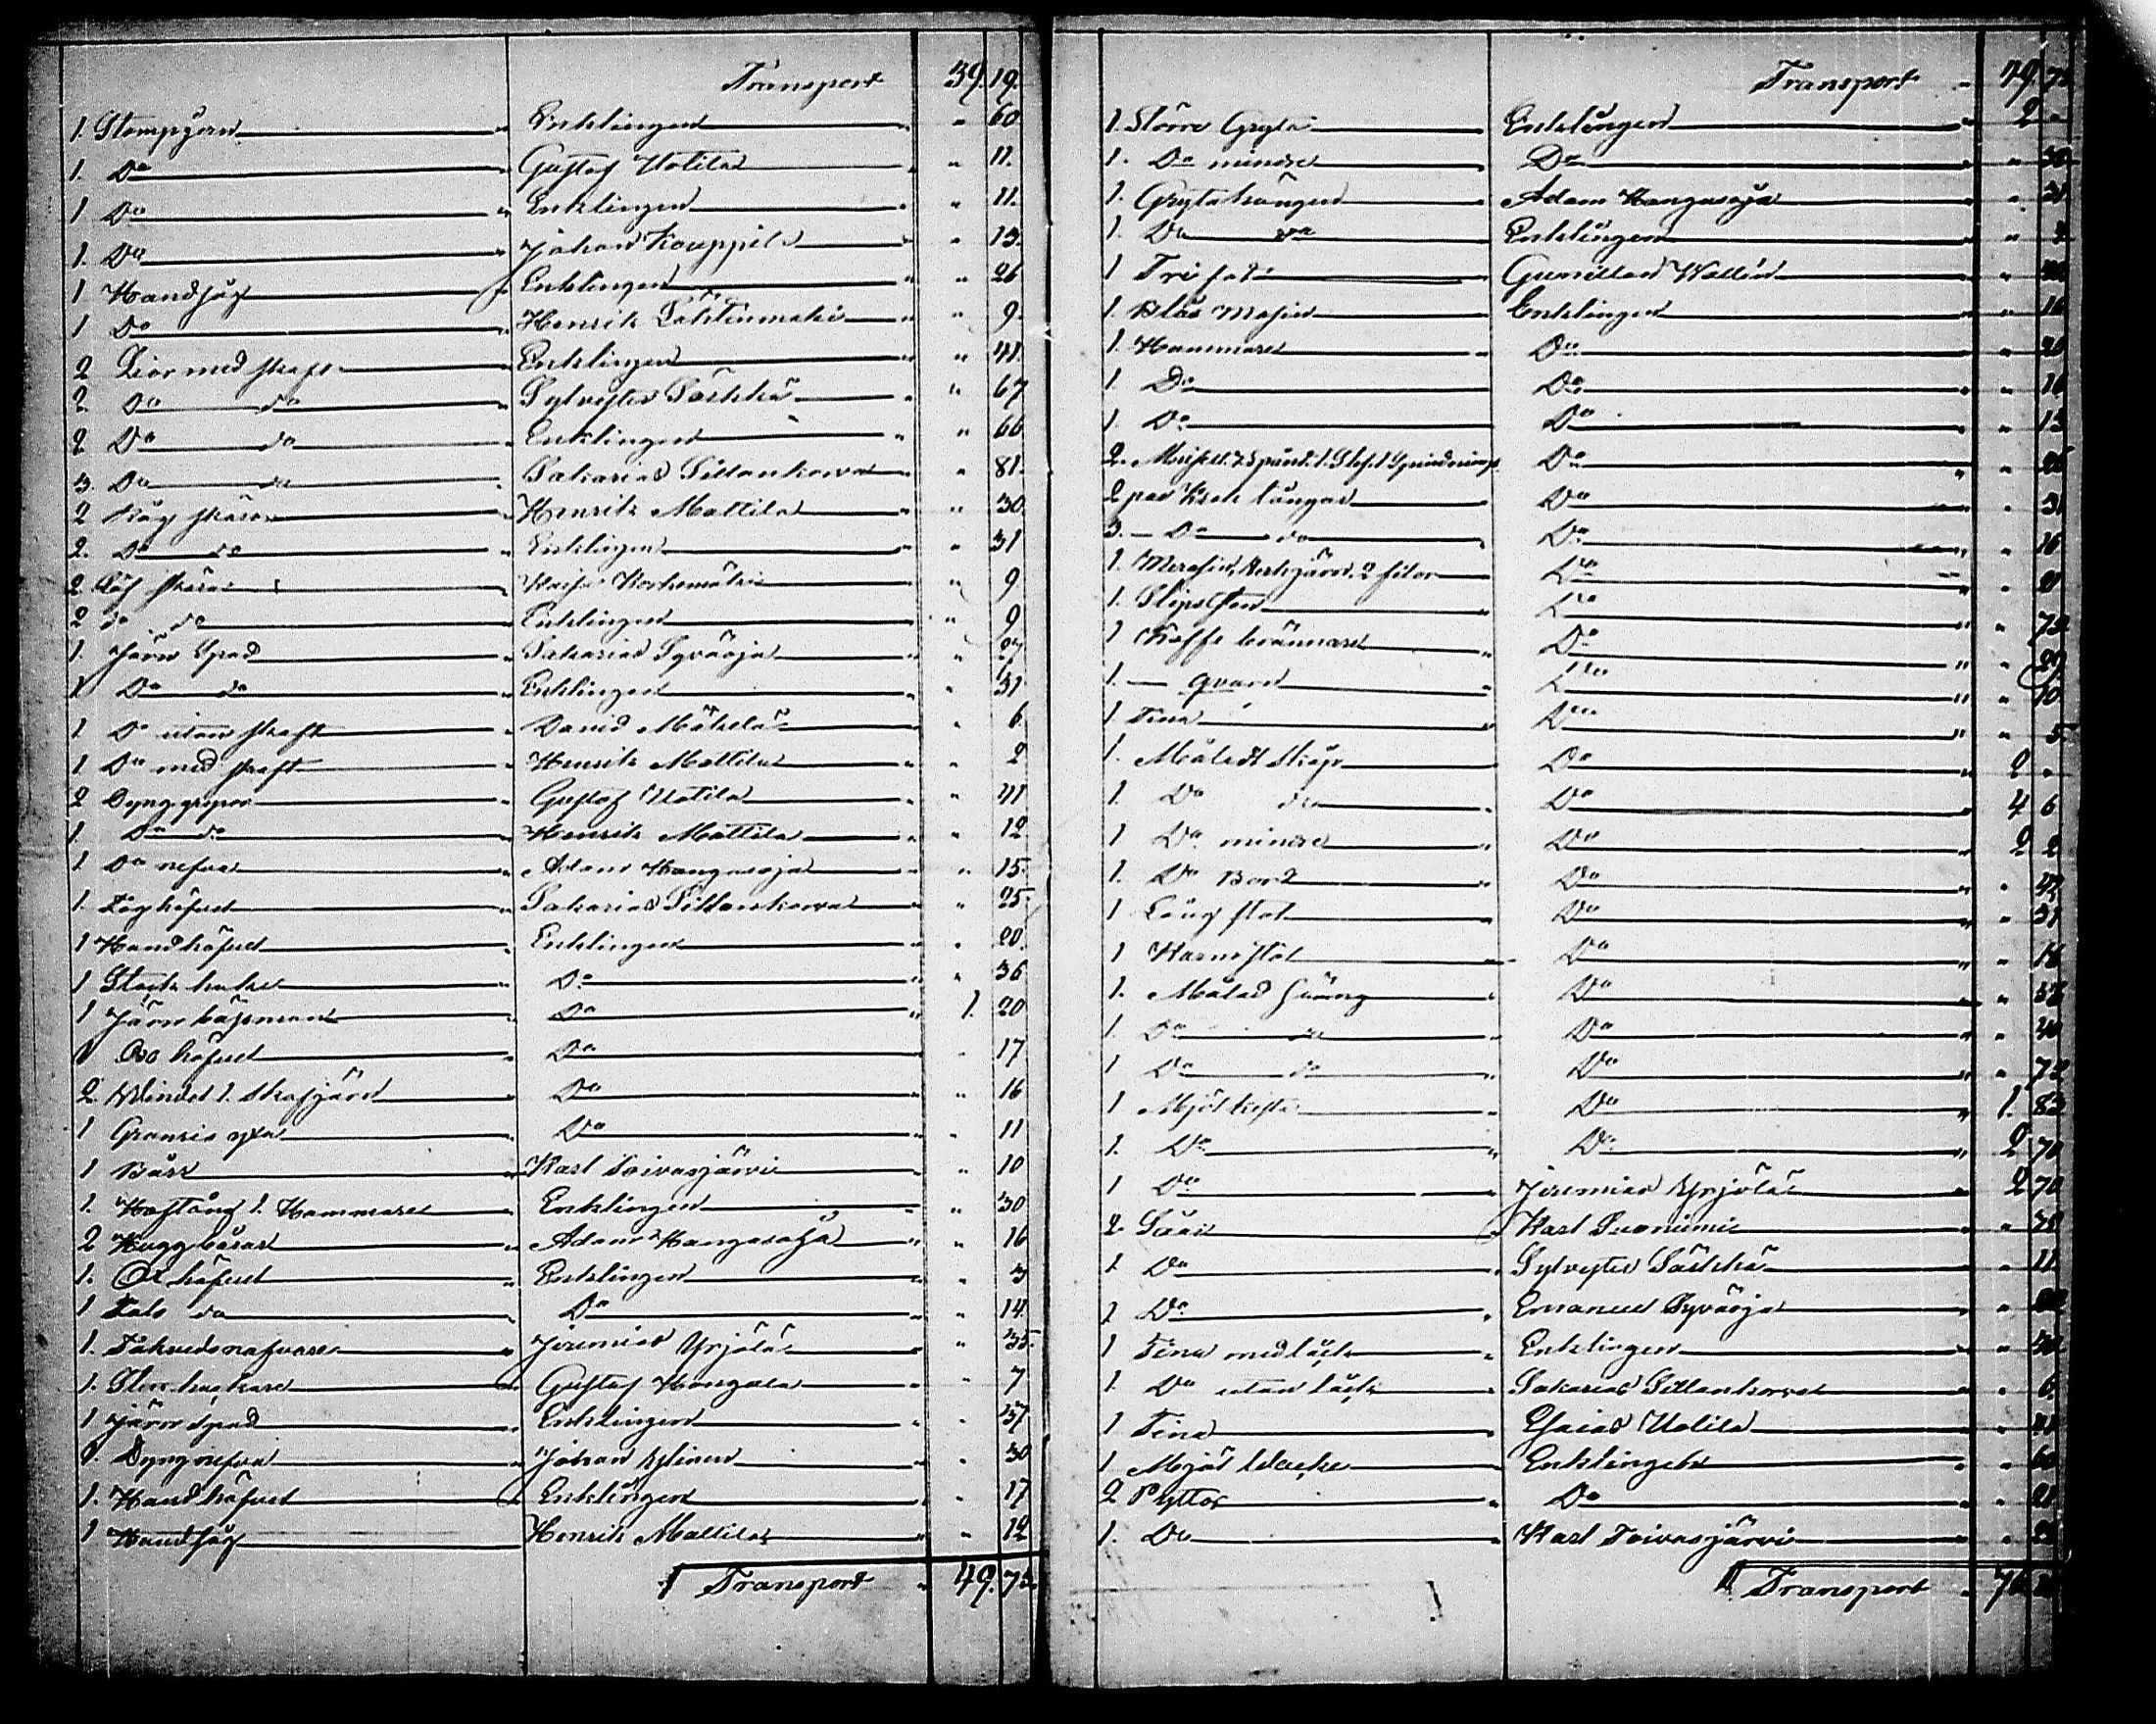 Transport 39. 19.
1. Stampjern Enklingen " 60
1. Do Gustaf Uotila " 11.
1 Do Enklingen " 11.
1. Do Johan Kauppila " 13.
1 Handsåg Enklingen " 26
1 Do Henrik Lähtinmäki " 9.
2 Liar med skaft Enklingen " 41.
2. Do do Sylvester Säikkä " 67
2 Do do Enklingen " 66
3. Do do Sakarias Sillankorva " 81.
2 Råg skäror Henrik Mattila " 30.
2. Do do Enklingen " 31
2 Löf skäror Kaisa Korkemäki " 9
2 do do Enklingen " 9
1. Järn Spad Sakarias Syväoja " 27
1 Do do Enklingen " 31
1 Do utan skaft David Mäkelä " 6.
1 Do med skaft Henrik Mattila " 2
2 Dyng grepar Gustaf Uotila " 41
1. Do do Henrik Mattila " 12
1 Do nefva Adam Kangasoja " 15.
1. Låghöfvel Sakarias Sillankorva " 25.
1 Handhöfvel Enklingen " 20.
1 Stock hake Do " 36
1 Järn båssman Do 1. 20
1 Oxo höfvel Do " 17
2 Vindel 1. Skafjärn Do " 16
1 Gransis yxa Do " 11
1 Bårr Karl Toivosjärvi " 10
1. Hoftång 1. Hammare Enklingen " 30
2 Hugg bårar Adam Kangasoja " 16
1. Ox höfvel Enklingen " 3
1 Fals do Do " 14.
1. Tåkvedsnafvare Jeremias Yrjölä " 35.
1. Stenhackare Gustaf Kangas " 7
1 Järn spad Enklingen " 37
1. Dyng nefva Johan Ylinen " 30
1. Hand höfvel Enklingen " 17
1 Handsåg Henrik Mattila " 12
Transport 49. 75.
Transport " 49 75
1. Större Gryta Enklingen 2 "
1. Do mindre Do "
1. Grytahängen Adam Kangasoja "
1. Do do Enklingen "
1 Trifot Gunillas Wallin "
1. Blås Masin Enklingen " 16
1. Hammare Do " 20
1 Do Do " 16
1. Do Do " 13
2. Do "
2 par Kreklångar Do " 31
3. — Do do Do " 16
1. 2 filar Do " 21
1. Slipsten Do " 75
1 Kaffe brännare Do " 29
1. — qvarn Do " 10
1 Tina Do " 5.
1. Måladt Skåp Do 2 "
1. Do do Do 4 6
1 Do mindre Do 2 2
1. Do Bord Do " 42
1 Lång stol Do " 31
1 Karmstol Do " 16
1. Målad Säng Do "
1. Do do Do "
1 Do do Do " 72
1 Mjöl kista Do 1. 82
1. Do Do 2 70
1 Do Jeremias Yrjölä 2 70
2 Såar Karl Suoniemi "
1 Do Sylvester Säikkä " 11
1 Do Emanuel Syväoja "
1 Tina med låck Enklingen "
1. Do utan låck Sakarias Sillankorva " 6
1 Tina Esaias Uotila "
1 Mjöl Enklingen " 60
2 Pyttor Do " 21
1. Do Karl Toivosjärvi "
Transport " 76